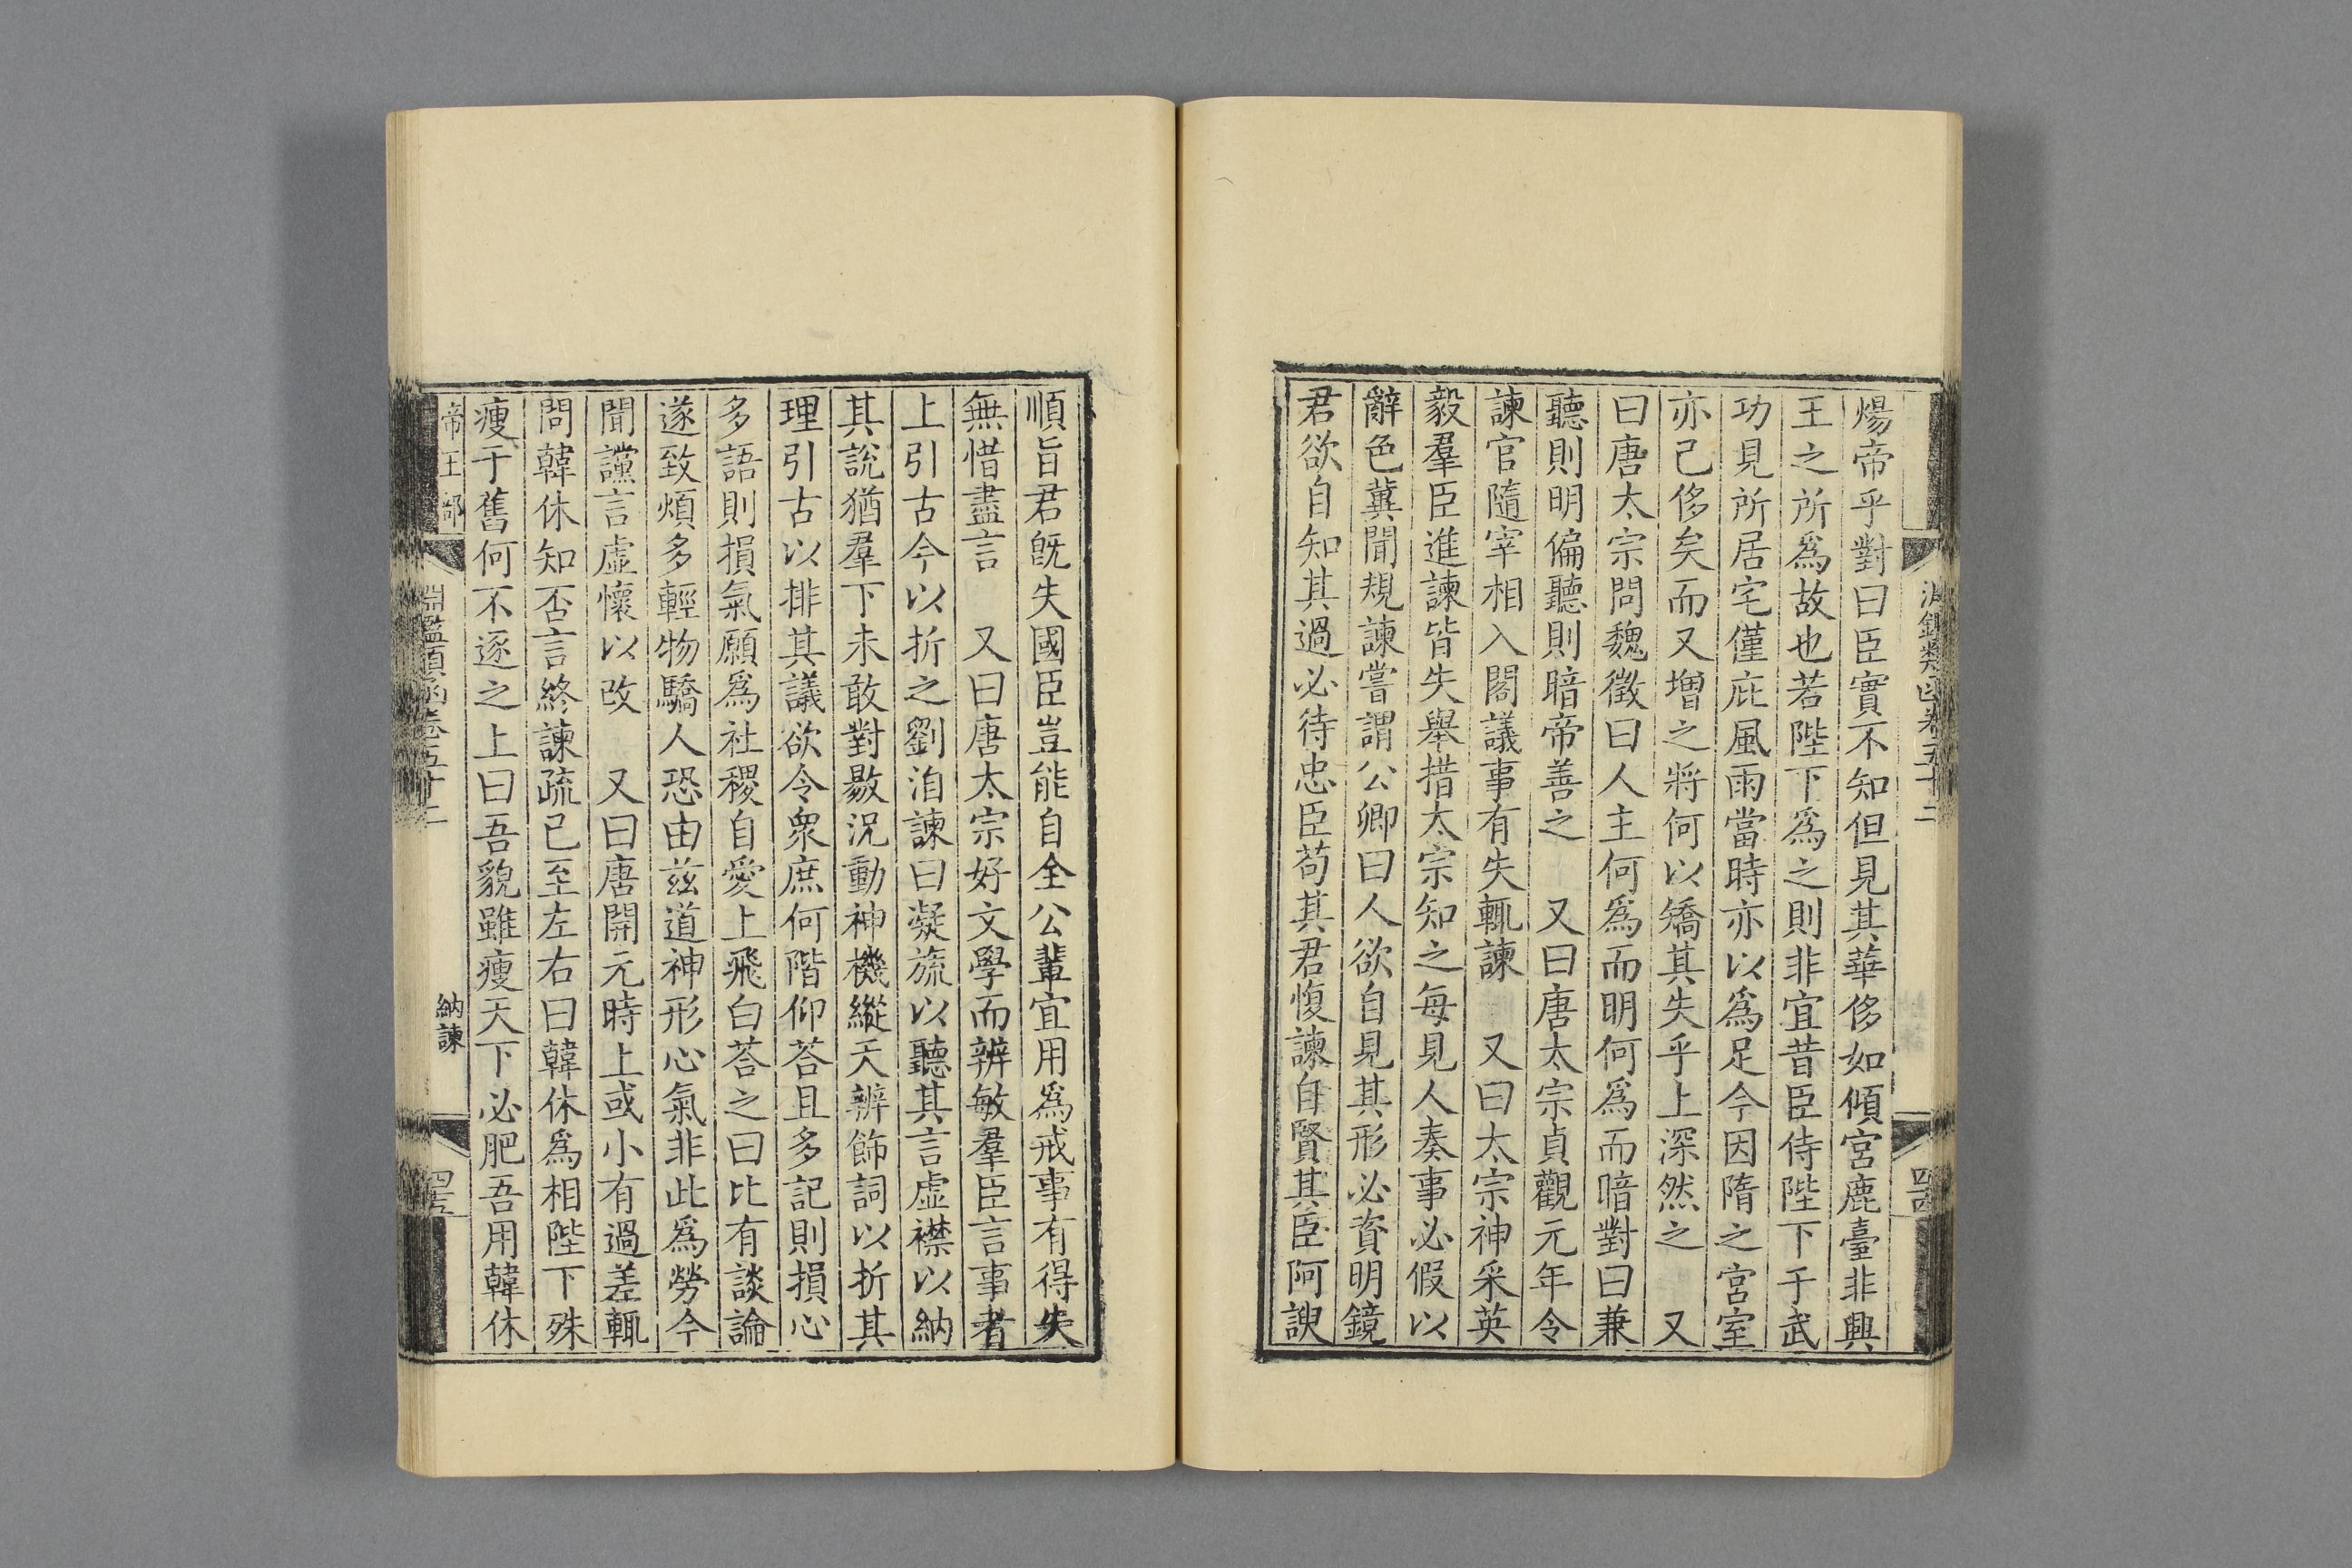 淵鑑類函卷五十二
煬帝乎對曰臣實不知但見其華侈如傾宮鹿臺非興
王之所爲故也若陛下爲之則非宜昔臣侍陛下于武
功見所居宅僅庇風雨當時亦以爲足今因隋之宮室
亦已侈矣而又增之將何以矯其失乎上深然之 又
曰唐太宗問魏徵曰人主何爲而明何爲而暗對曰兼
聽則明偏聽則暗帝善之 又曰唐太宗貞觀元年令
諫官隨宰相入閤議事有失輒諫 又曰太宗神采英
毅羣臣進諫皆失舉措太宗知之每見人奏事必假以
辭色冀聞規諫嘗謂公卿曰人欲自見其形必資明鏡
君欲自知其過必待忠臣苟其君愎諫自賢其臣阿諛
順旨君旣失國臣豈能自全公輩宜用爲戒事有得失
無惜盡言 又曰唐太宗好文學而辨敏羣臣言事者
上引古今以折之劉洎諫曰凝旒以聽其言虛襟以納
其說猶羣下未敢對敭況動神機縱天辨飾詞以折其
理引古以排其議欲令衆庶何階仰荅且多記則損心
多語則損氣願爲社稷自愛上飛白荅之曰比有談論
遂致煩多輕物驕人恐由茲道神形心氣非此爲勞今
聞讜言虛懷以改 又曰唐開元時上或小有過差輒
問韓休知否言終諫疏已至左右曰韓休爲相陛下殊
瘦于舊何不逐之上曰吾貌雖瘦天下必肥吾用韓休
帝王部 淵鑑類函卷五十二 納諫